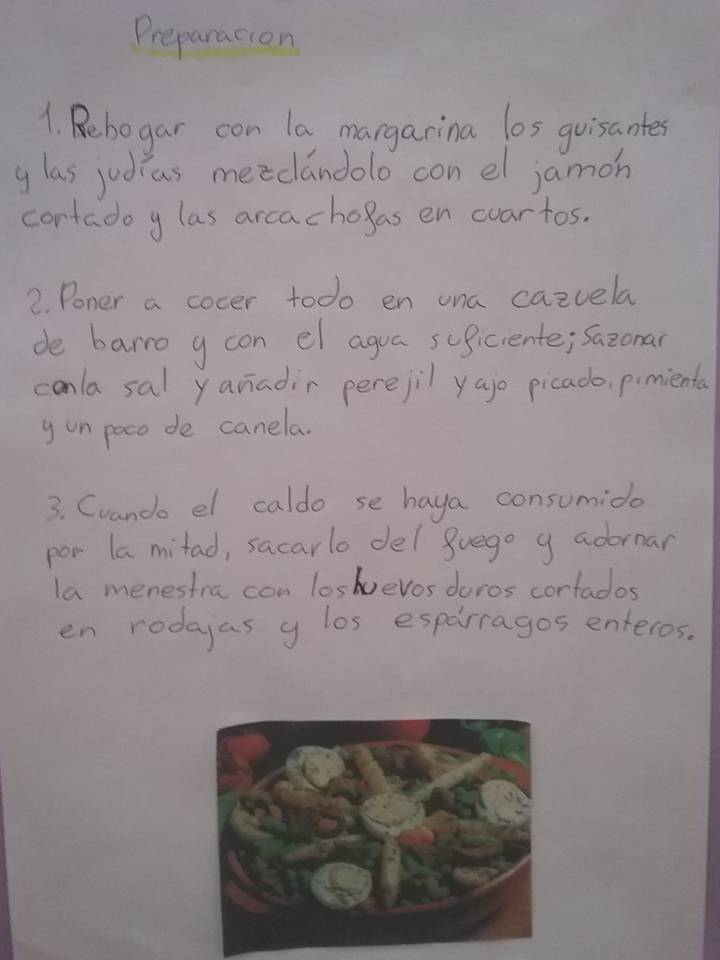 Preparacion
1. Rehogar con la margarina los guisantes
y las judías mezclándolo con el jamón
cortado y las arcachofas en cuartos.
2. Poner a cocer todo en una cazuela
de barro y con el agua suficiente; Sazonar
con la sal y añadir perejil y ajo picado, pimienta
y un poco de canela.
3. Cuando el caldo se haya consumido
por la mitad, sacarlo del fuego y adornar
la menestra con los huevos duros cortados
en rodajas y los espárragos enteros.